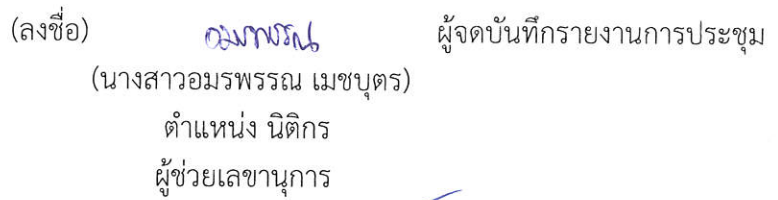 (ลงชื่อ) อมรพรรณ ผู้จดบันทึกรายงานการประชุม
(นางสาวอมรพรรณ เมชบุตร)
ตำแหน่ง นิติกร
ผู้ช่วยเลขานุการ